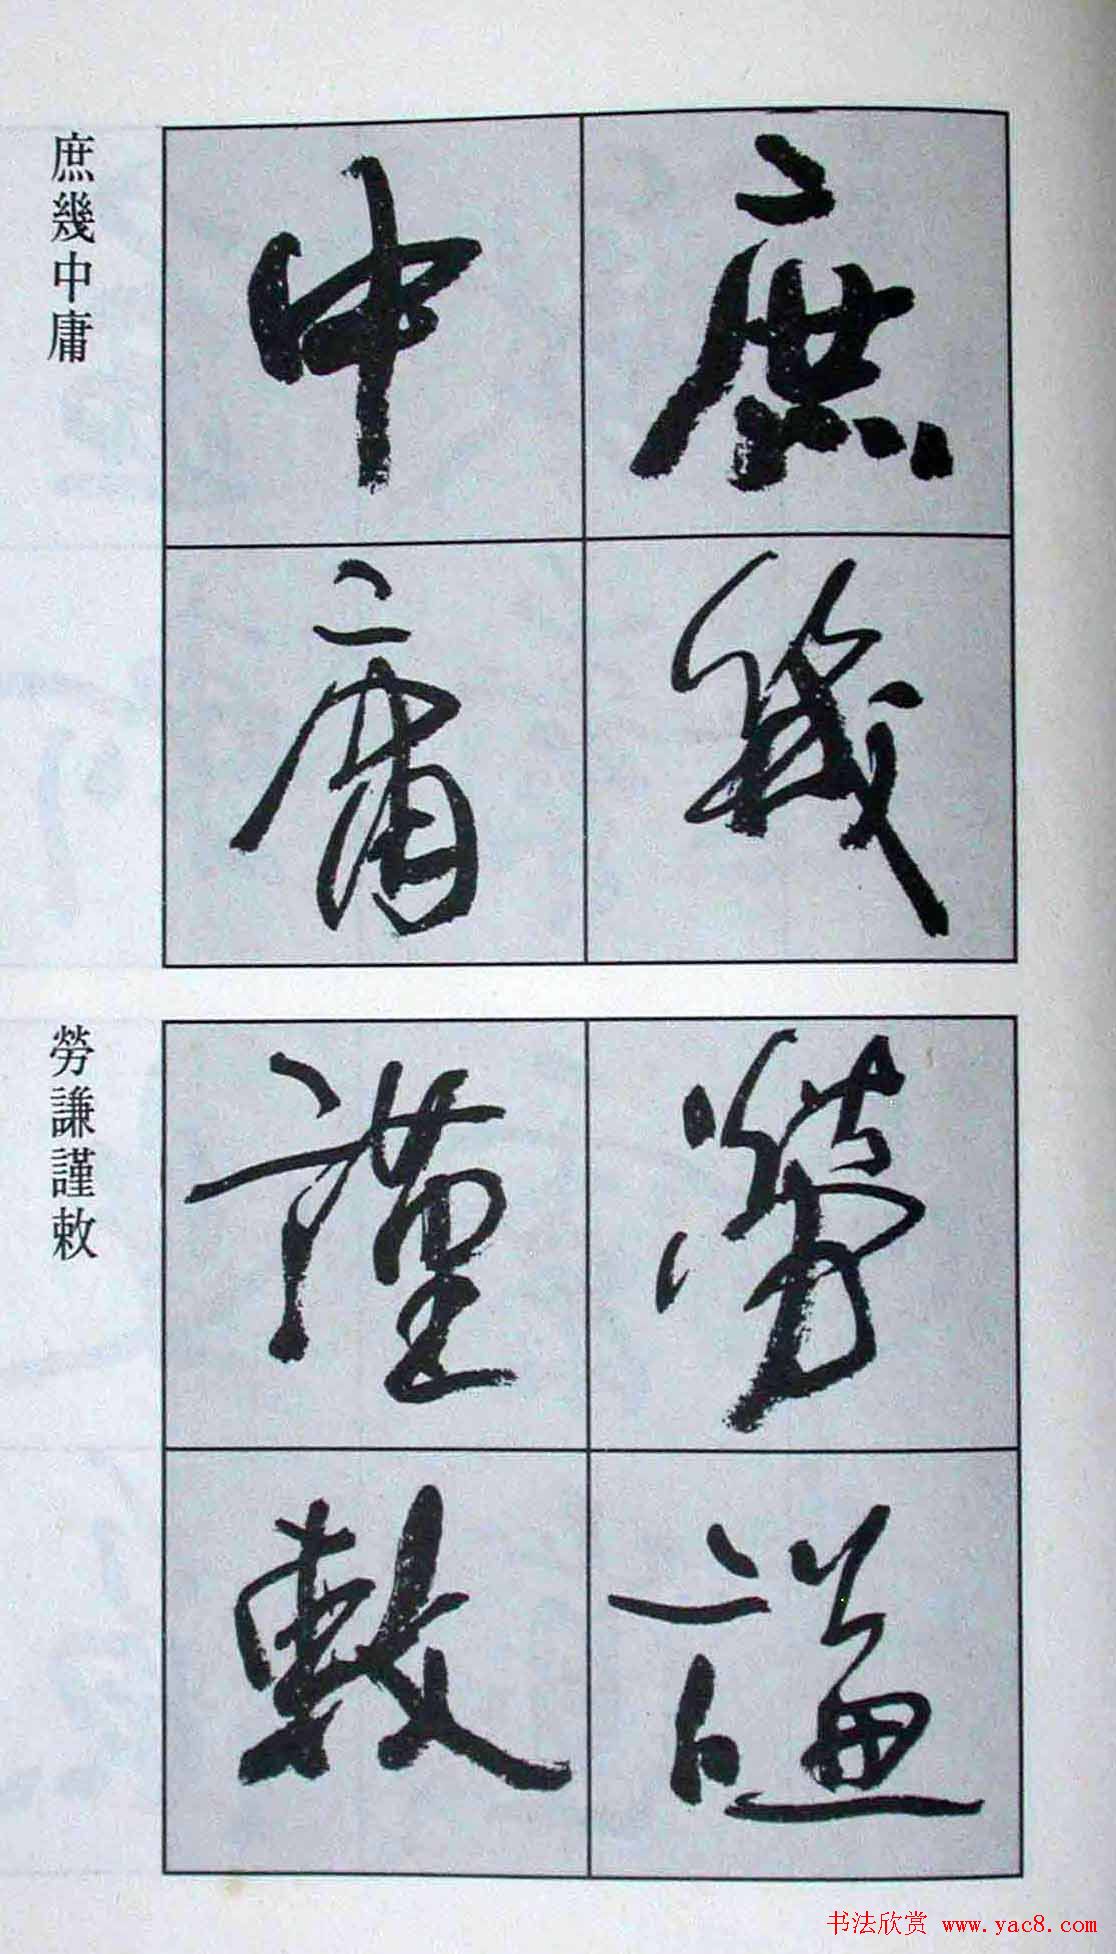 庶幾
中庸
庶幾中庸
勞謙
謹敕
勞謙謹敕
书法欣赏 www.yac8.com